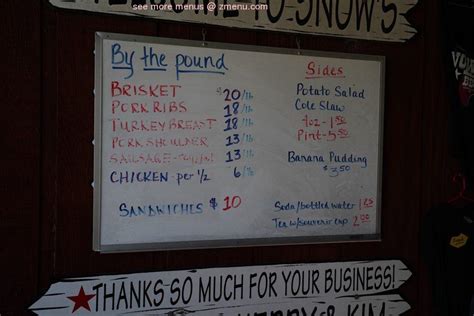 see more menus @ zmenu.com
WELCOME TO SNOW'S
By the pound
BRISKET $20/lb
PORK RIBS 18/lb
TURKEY BREAST 18/lb
PORK SHOULDER 13/lb
SAUSAGE 13/lb
CHICKEN - per 1/2 6/lb
SANDWICHES $10
Sides
Potato Salad
Cole Slaw
Pint - 5.00
Banana Pudding
$3.50
Soda/bottled water 1.25
Tea w/souvenir cup 2.00
THANKS SO MUCH FOR YOUR BUSINESS!
KERRY & KIM